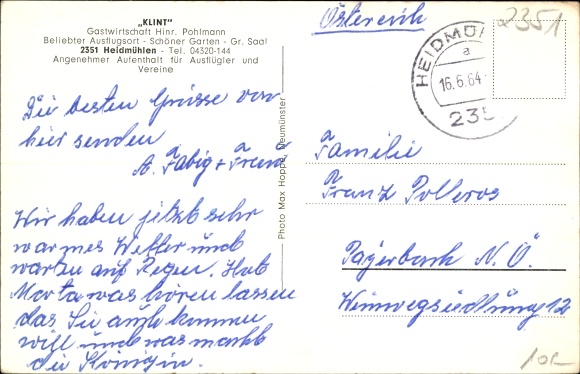 „KLINT"
Gastwirtschaft Hinr. Pohlmann
Beliebter Ausflugsort - Schöner Garten - Gr. Saal
2351 Heidmühlen - Tel. 04320-144
Angenehmer Aufenthalt für Ausflügler und
Vereine
Die besten Grüsse von
hier senden
A. Fabig + Frau
Wir haben jetzt sehr
warmes Wetter und
warten auf Regen. Hat
Marta was hören lassen
das Sie auch kommen
will und was macht
die Königin.
Photo Max Hoppe, Neumünster
Österreich
2351
HEIDMÜ
a
16.6.64
235
Familie
Franz Polleros
N.Ö.
12
10.-